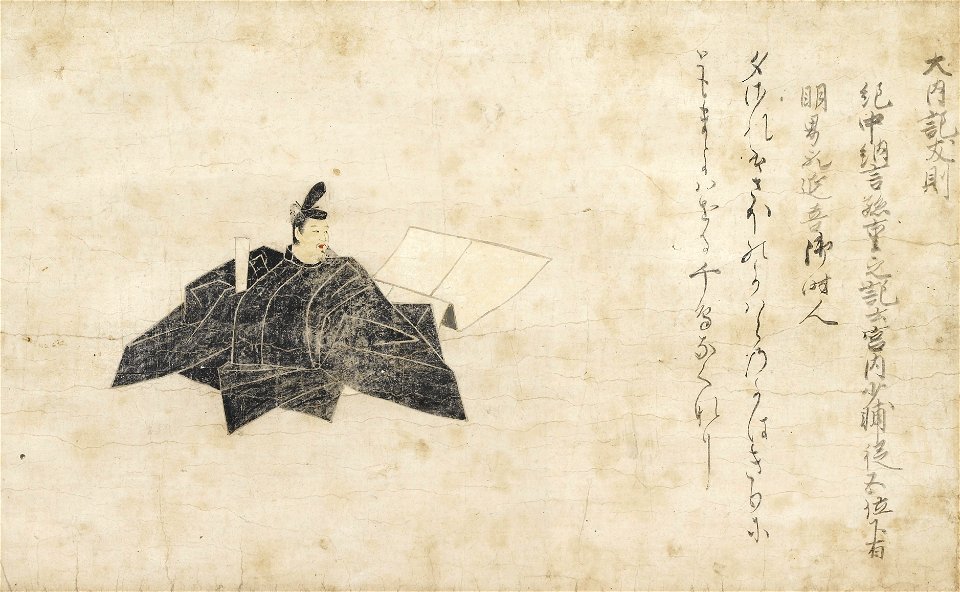 大内記友則
紀中納言孫 宮内少輔従五位下有
朋男 延喜御時人
夕されはさほのかはらのかはきりに
ともまとはせる千鳥なくなり